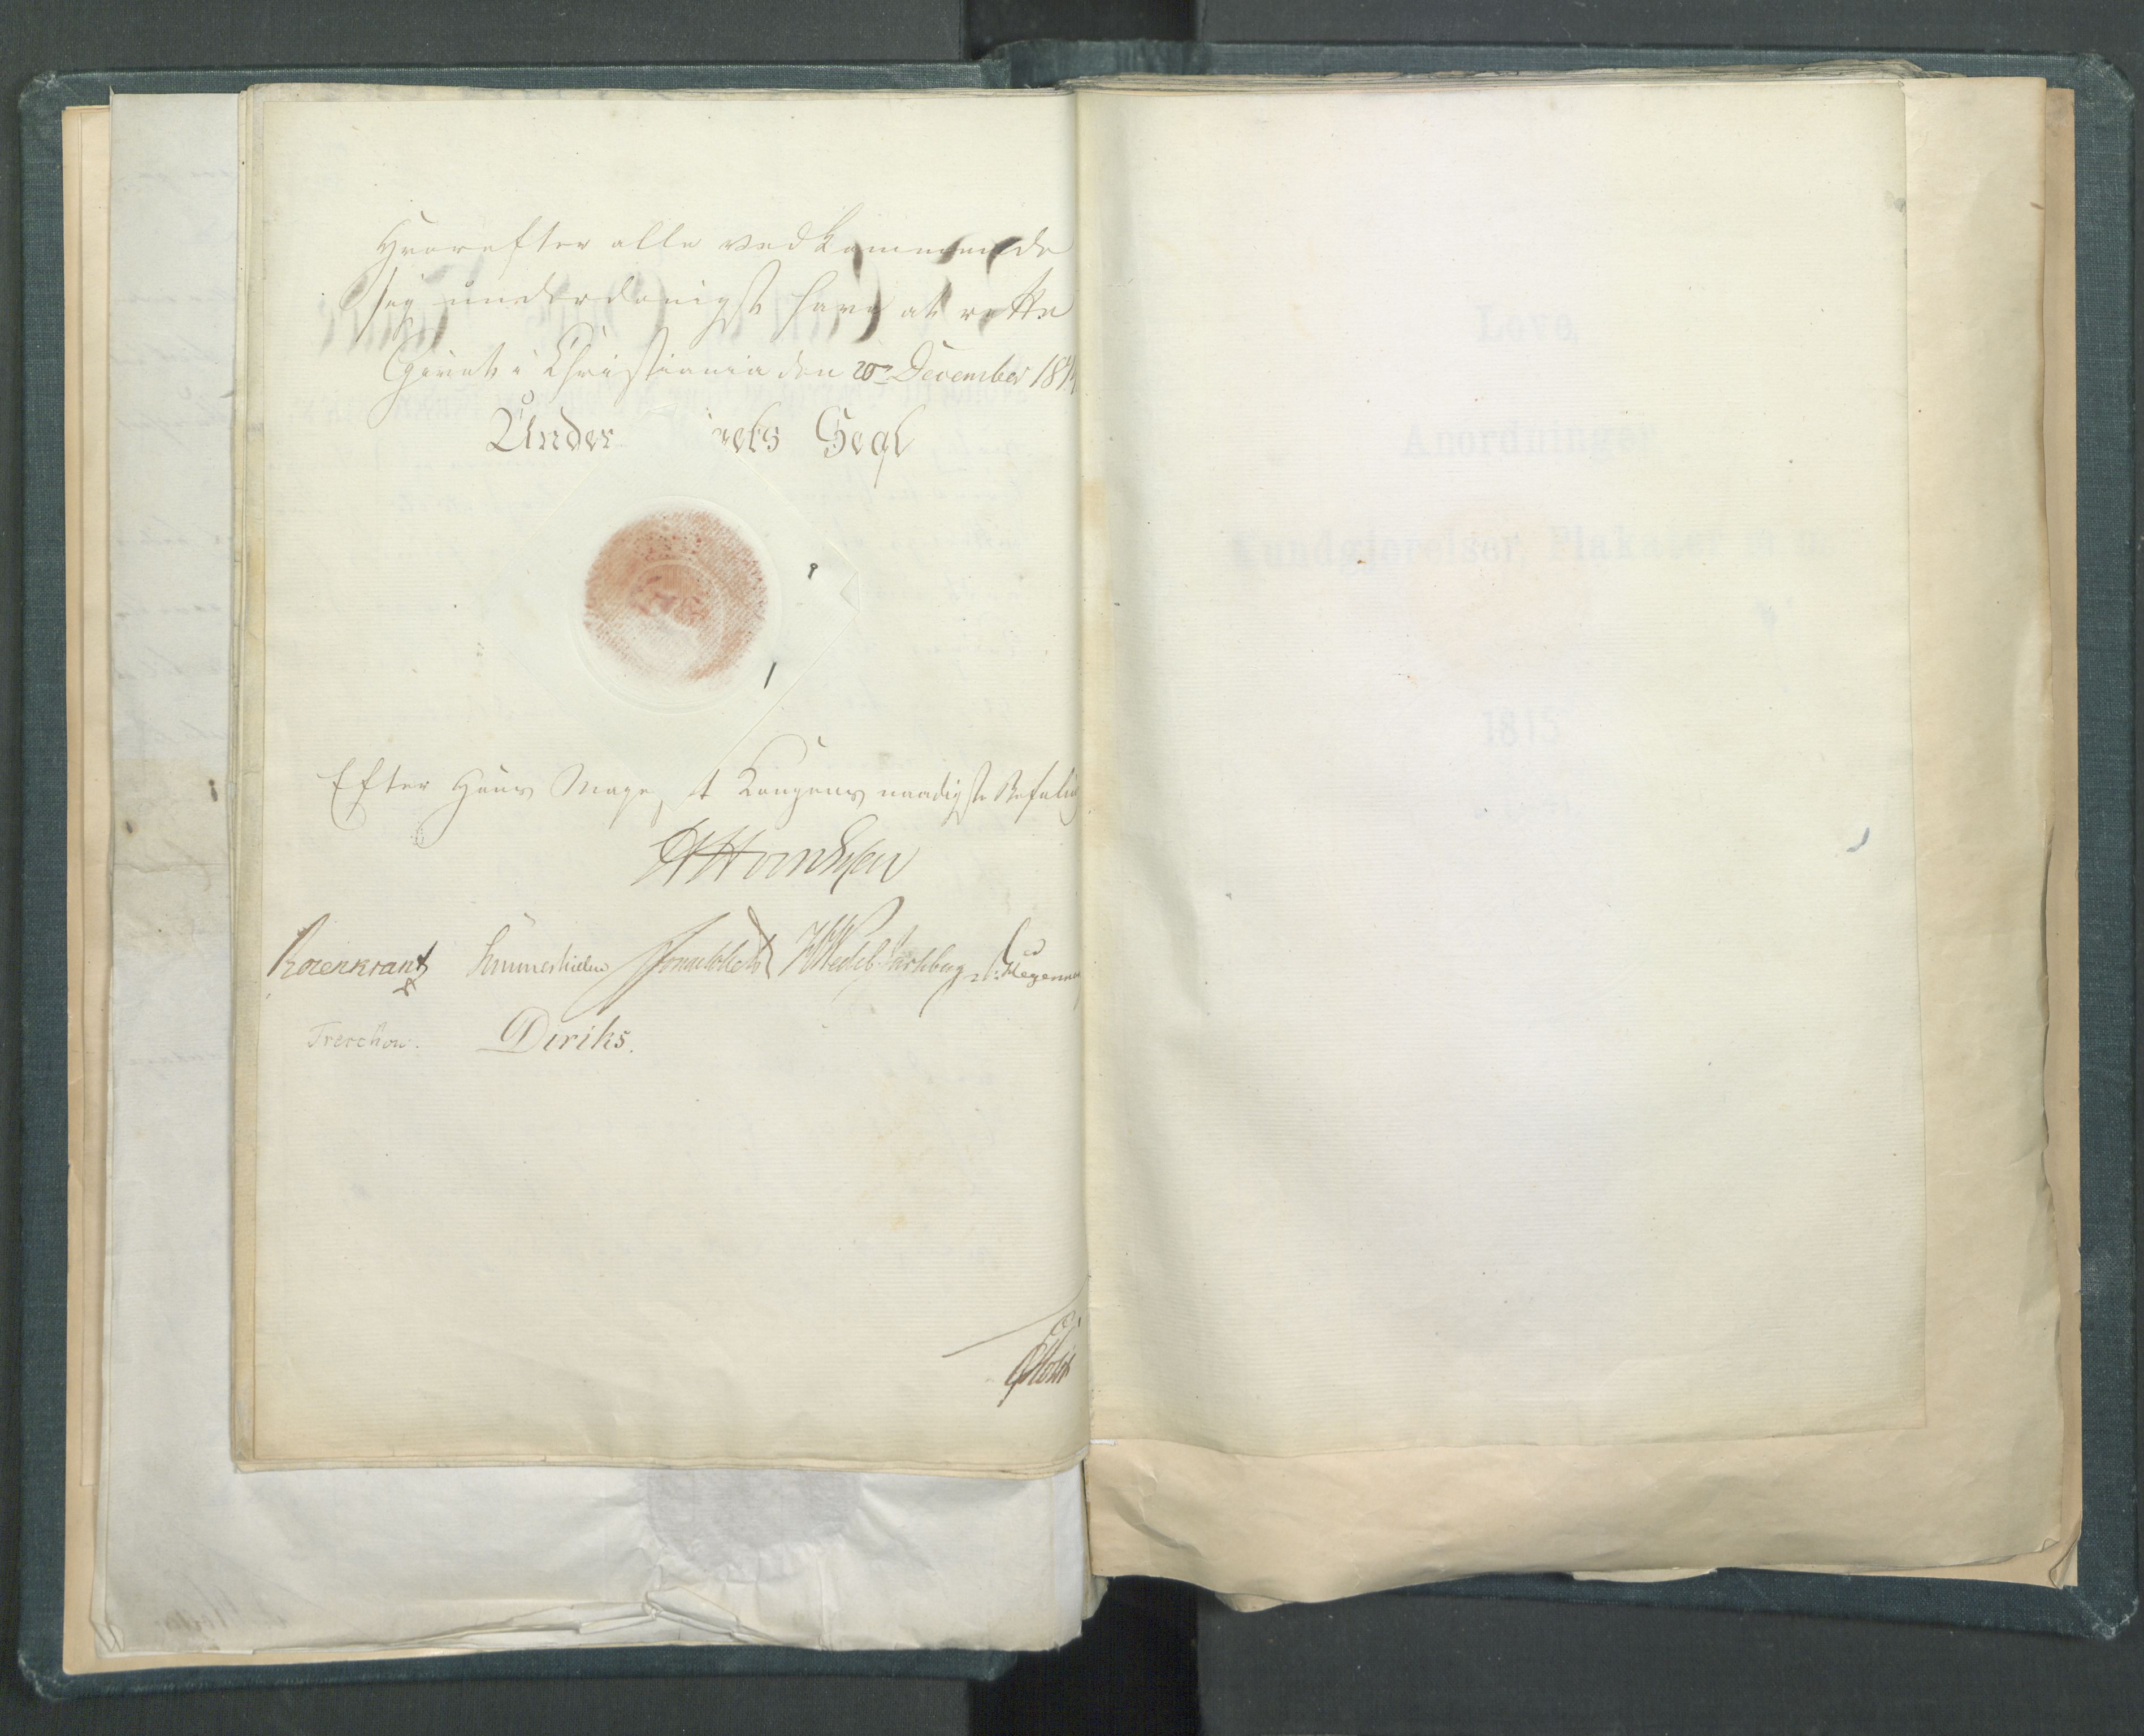 Hvorefter alle vedkommende
sig underdanigst have at rette
Givet i Christiania den 20de December 1814
Under ets Segl
Efter Hans Maye t Kongens naadigste Befaling
Rosenkrantz Sommerhielm Jonas Collett Wedel Jarlsberg Hegermann
Treschow. Diriks.
Love,
Anordninger
Kundgjørelser Plakater m.m.
1815